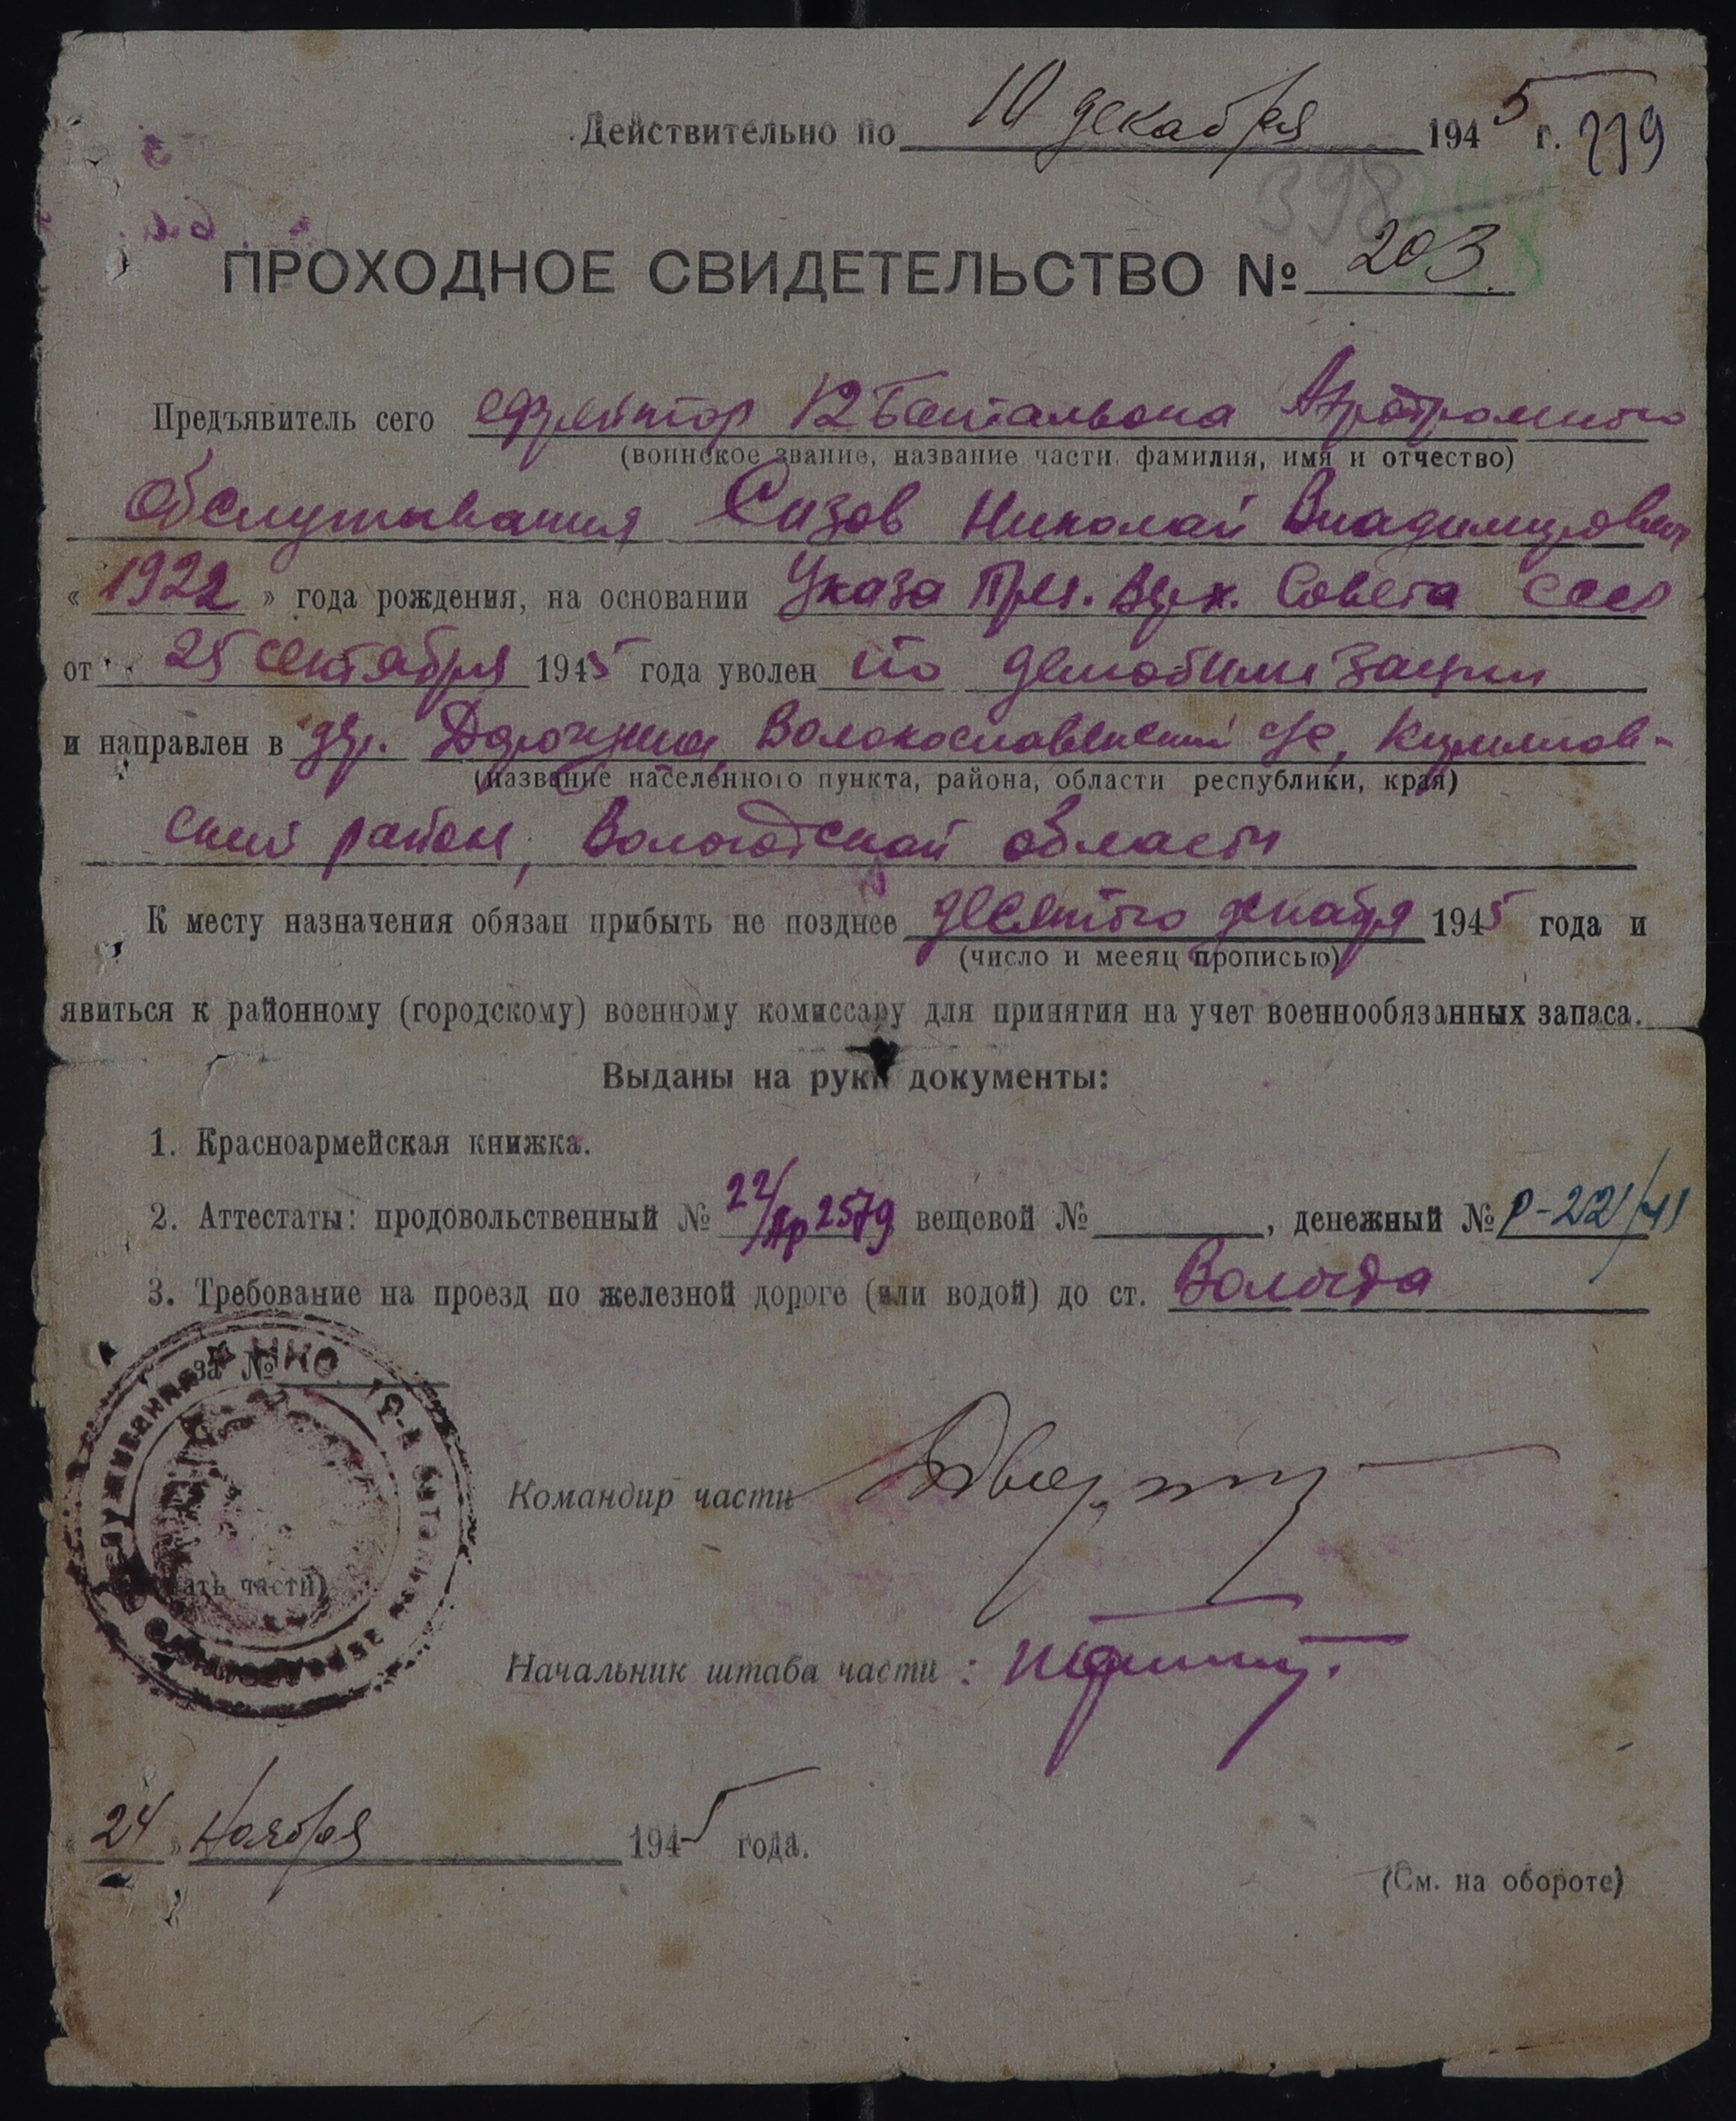 Действительно по 10 декабря 1945 г. 219
398
ПРОХОДНОЕ СВИДЕТЕЛЬСТВО № 203.
Предъявитель сего ефрейтор 12 Батальона Аэродромного
(воинское звание, название части, фамилия, имя и отчество)
Обслуживания Сизов Николай Владимирович
« 1922 » года рождения, на основании Указа През. Верх. Совета СССР
от 25 сентября 1945 года уволен по демобилизации
и направлен в дер. Волокославинский с/с, Кириллов-
(название населенного пункта, района, области республики, края)
ский район, Вологодской области
К месту назначения обязан прибыть не позднее десятого декабря 1945 года и
(число и месяц прописью)
явиться к районному (городскому) военному комиссару для принятия на учет военнообязанных запаса.
Выданы на руки документы:
1. Красноармейская книжка.
2. Аттестаты: продовольственный № 22/Ар 2579 вещевой № , денежный № Р-221/41
3. Требование на проезд по железной дороге (или водой) до ст. Вологда
за №
НКО 12-й батальон аэродромного обслуживания
Командир части
(печать части)
Начальник штаба части :
« 24 » Ноября 1945 года.
(См. на обороте)